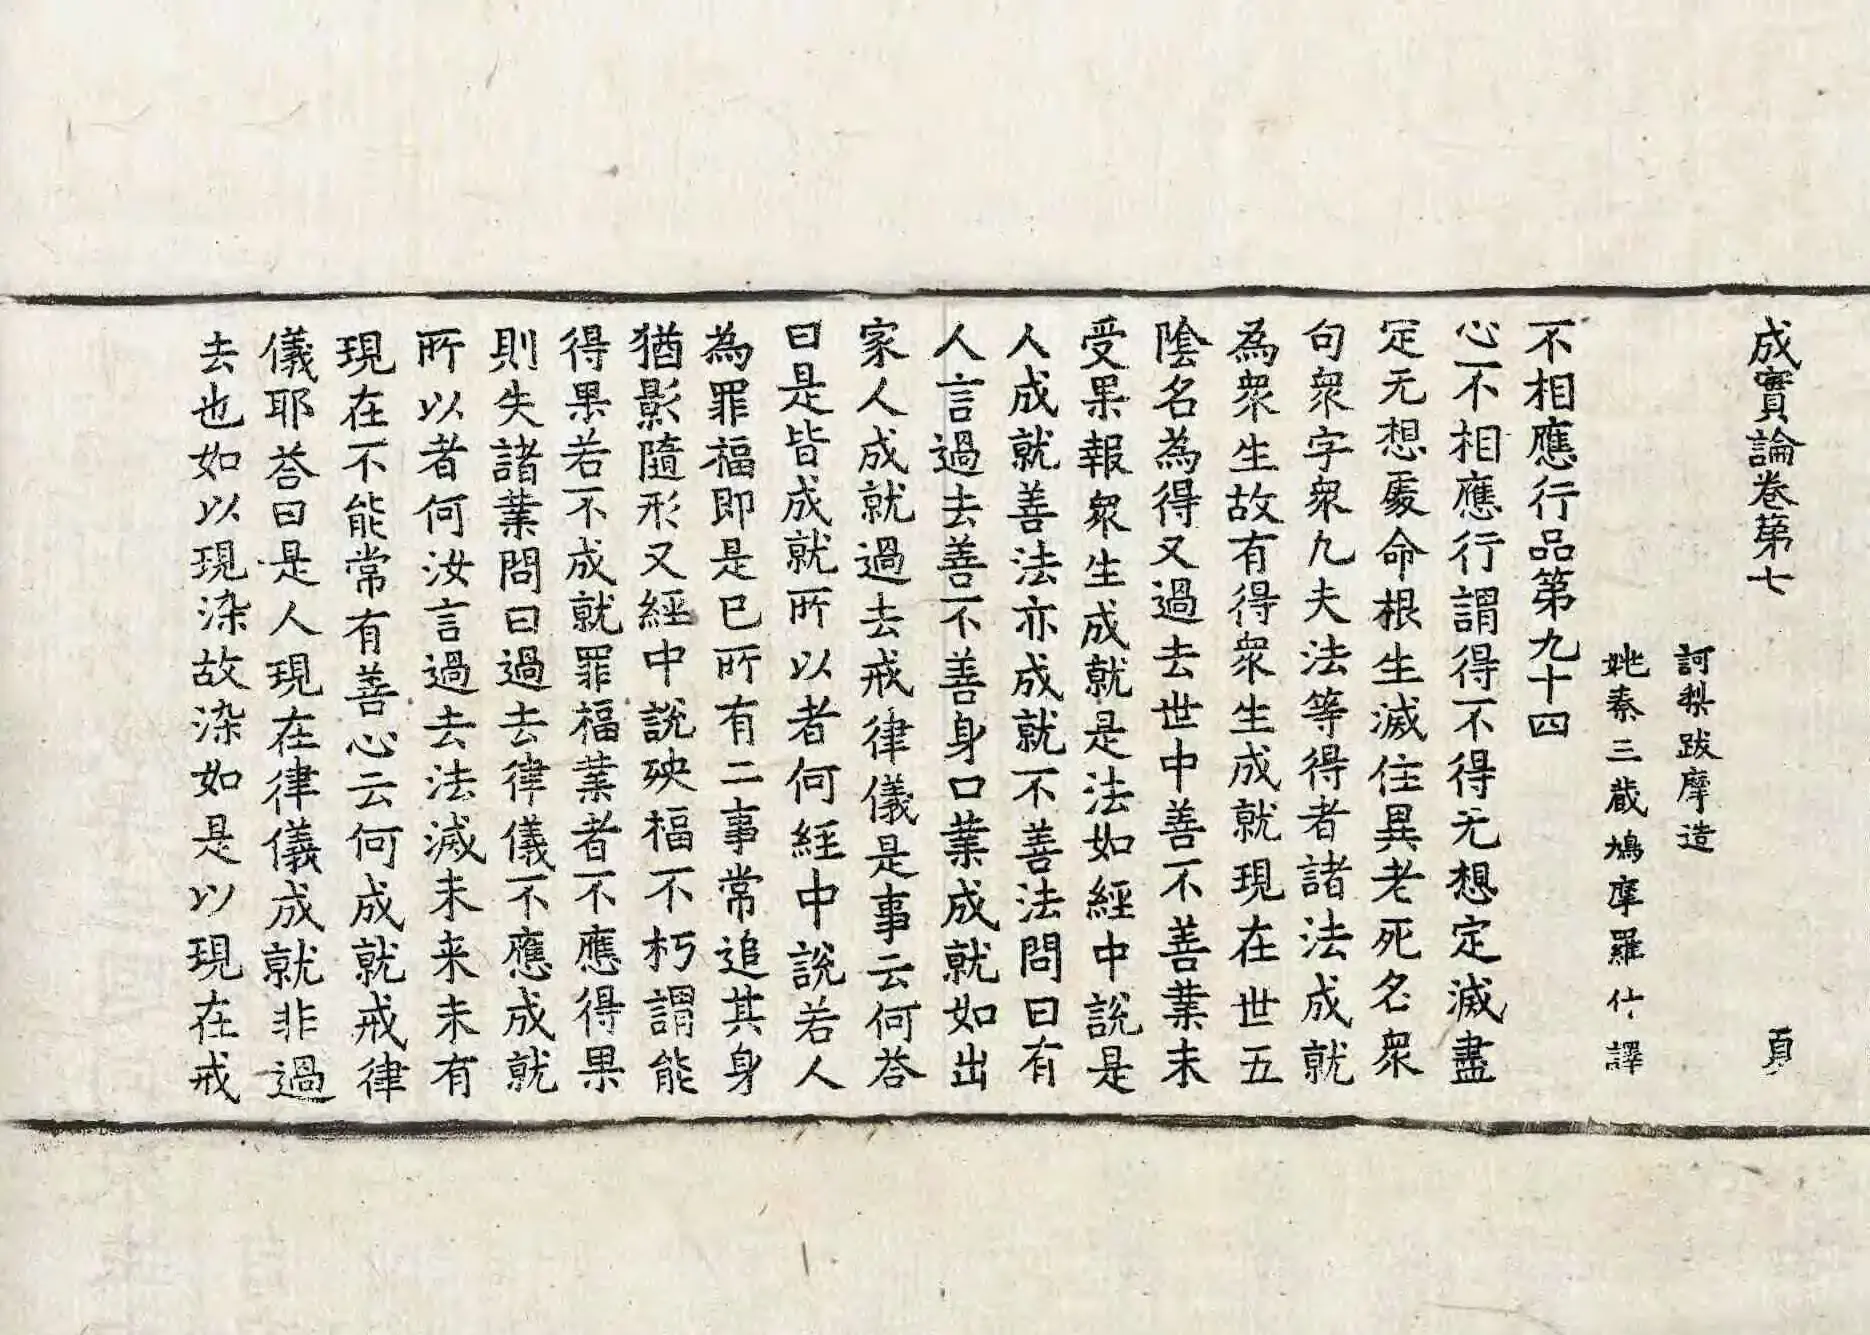 成實論卷苐七 貞
訶梨跋摩造
姚秦三藏鳩摩羅什譯
不相應行品第九十四
心不相應行謂得不得无想定滅盡
定无想處命根生滅住異老死名衆
句衆字衆凡夫法等得者諸法成就
為衆生故有得衆生成就現在世五
陰名為得又過去世中善不善業未
受果報衆生成就是法如經中說是
人成就善法亦成就不善法問曰有
人言過去善不善身口業成就如出
家人成就過去戒律儀是事云何荅
曰是皆成就所以者何經中說若人
為罪福即是已所有二事常追其身
猶影隨形又經中說殃福不朽謂能
得果若不成就罪福業者不應得果
則失諸業問曰過去律儀不應成就
所以者何汝言過去法滅未来未有
現在不能常有善心云何成就戒律
儀耶荅曰是人現在律儀成就非過
去也如以現染故染如是以現在戒